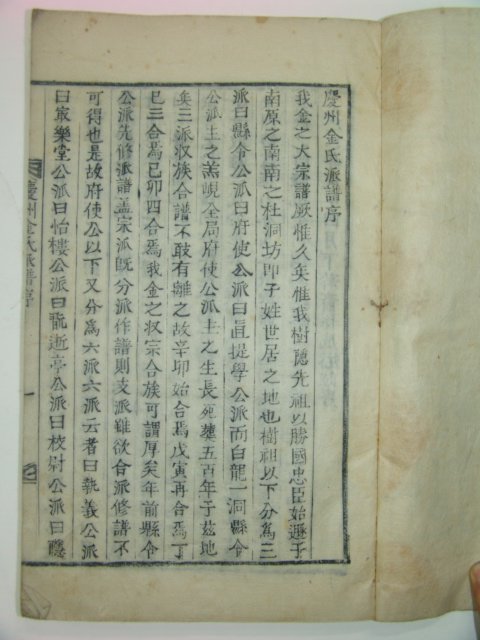 慶州金氏派譜序
我金之大宗譜厥惟久矣惟我樹隱先祖以勝國忠臣始遯于
南原之南南之杜洞坊即子姓世居之地也樹祖以下分爲三
派曰縣令公派曰府使公派曰直提學公派而白龍一洞縣令
公派主之蓋峴全局府使公派主之生長死葬五百年于玆地
矣三派收族合譜不敢有離之故辛卯始合焉戊寅再合焉丁
巳三合焉已卯四合焉我金之収宗合族可謂厚矣年前縣令
公派先修派譜盖宗派既分派作譜則支派雖欲合派修譜不
可得也是故府使公以下又分爲六派六派云者曰執義公派
曰最樂堂公派曰怡樓公派曰龍逝亭公派曰校尉公派曰
慶州金氏派譜序
一